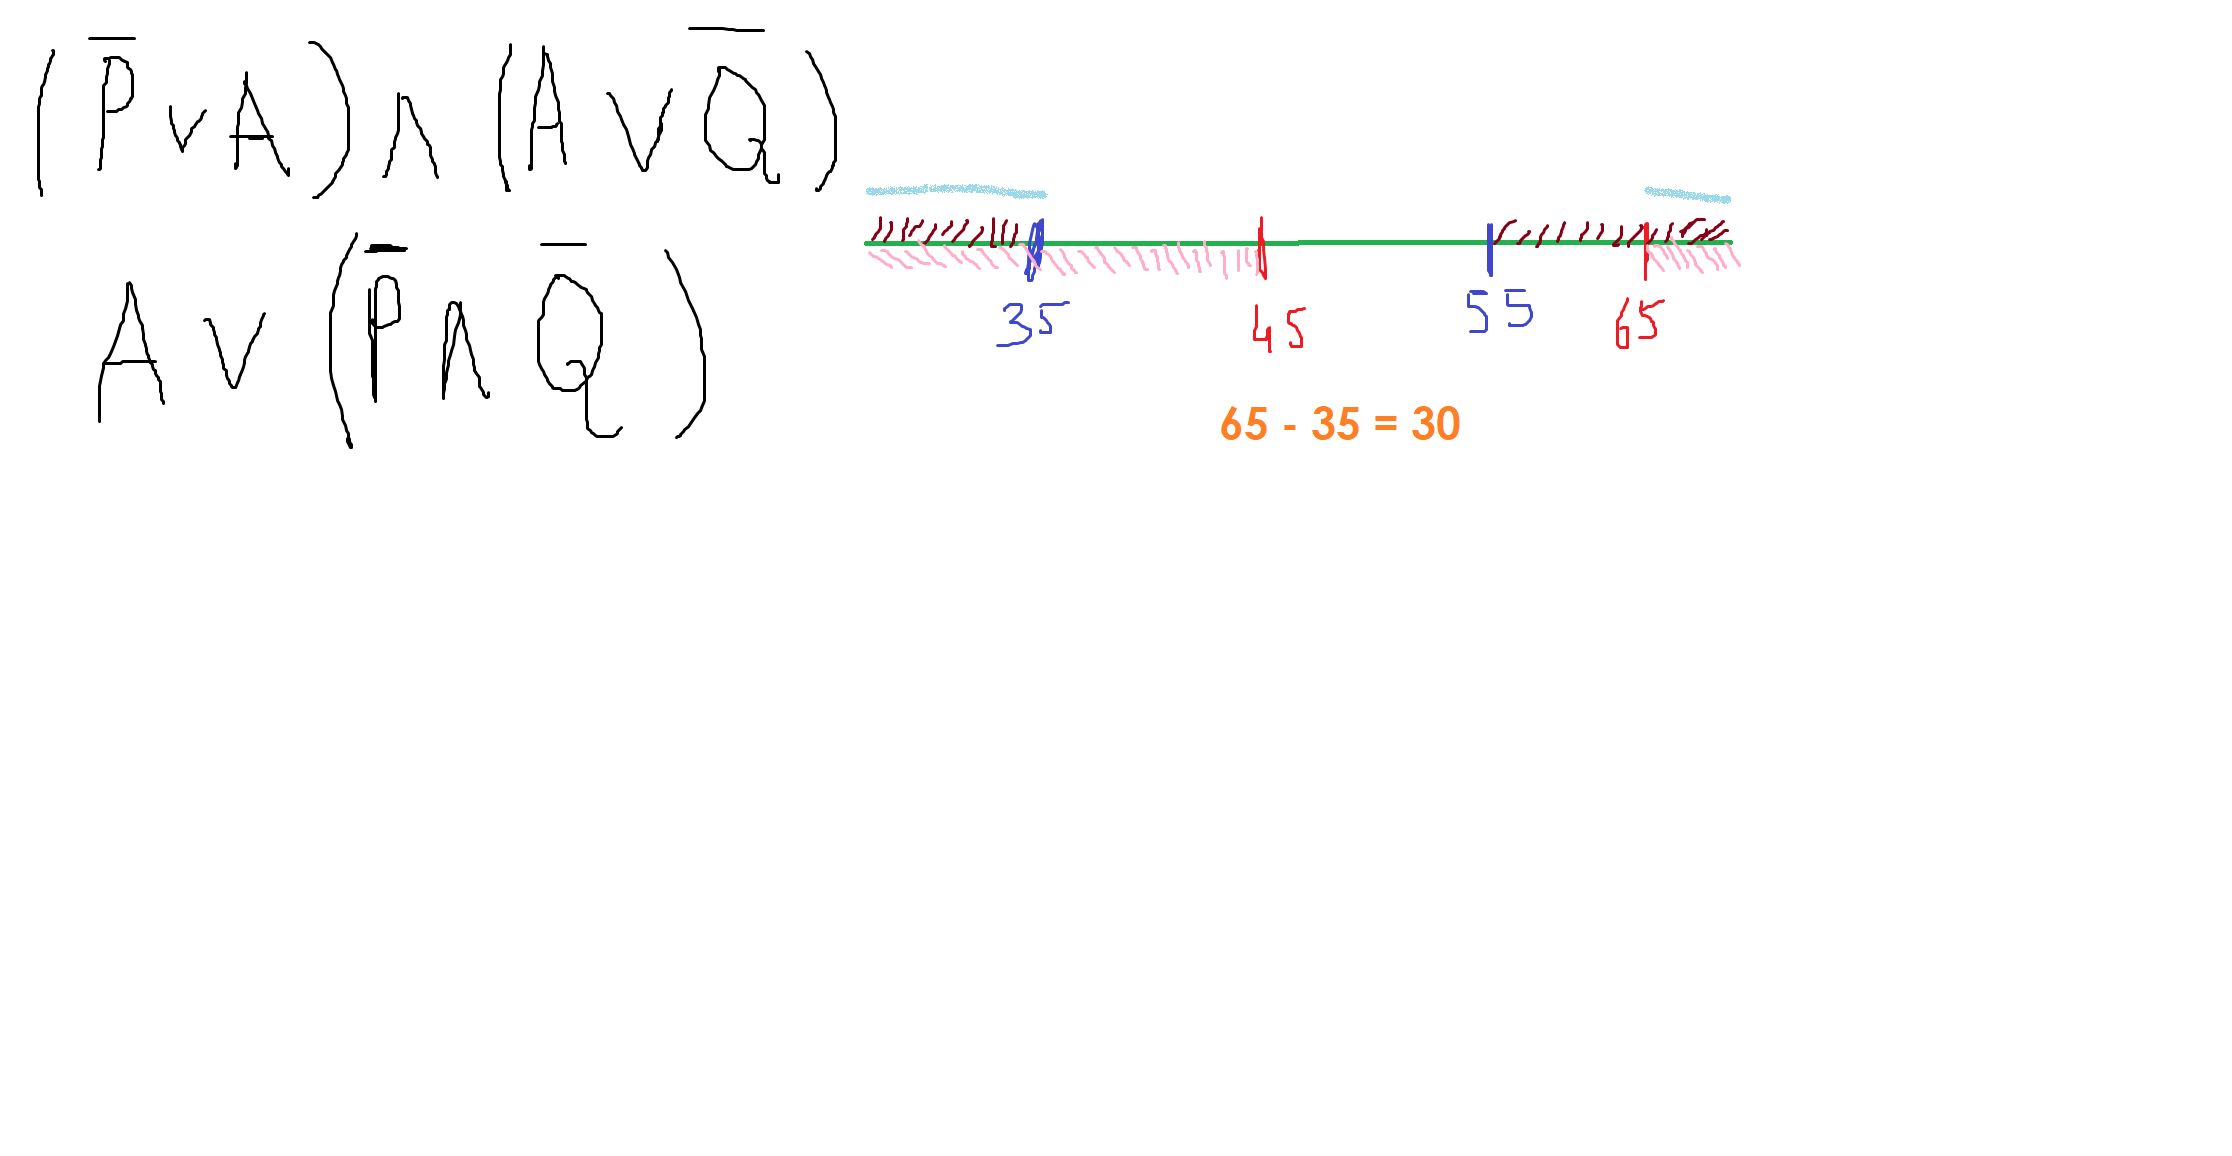 (P̅ ∨ A) ∧ (A ∨ Q̅)
A ∨ (P̅ ∧ Q̅)
35 45 55 65
65 - 35 = 30